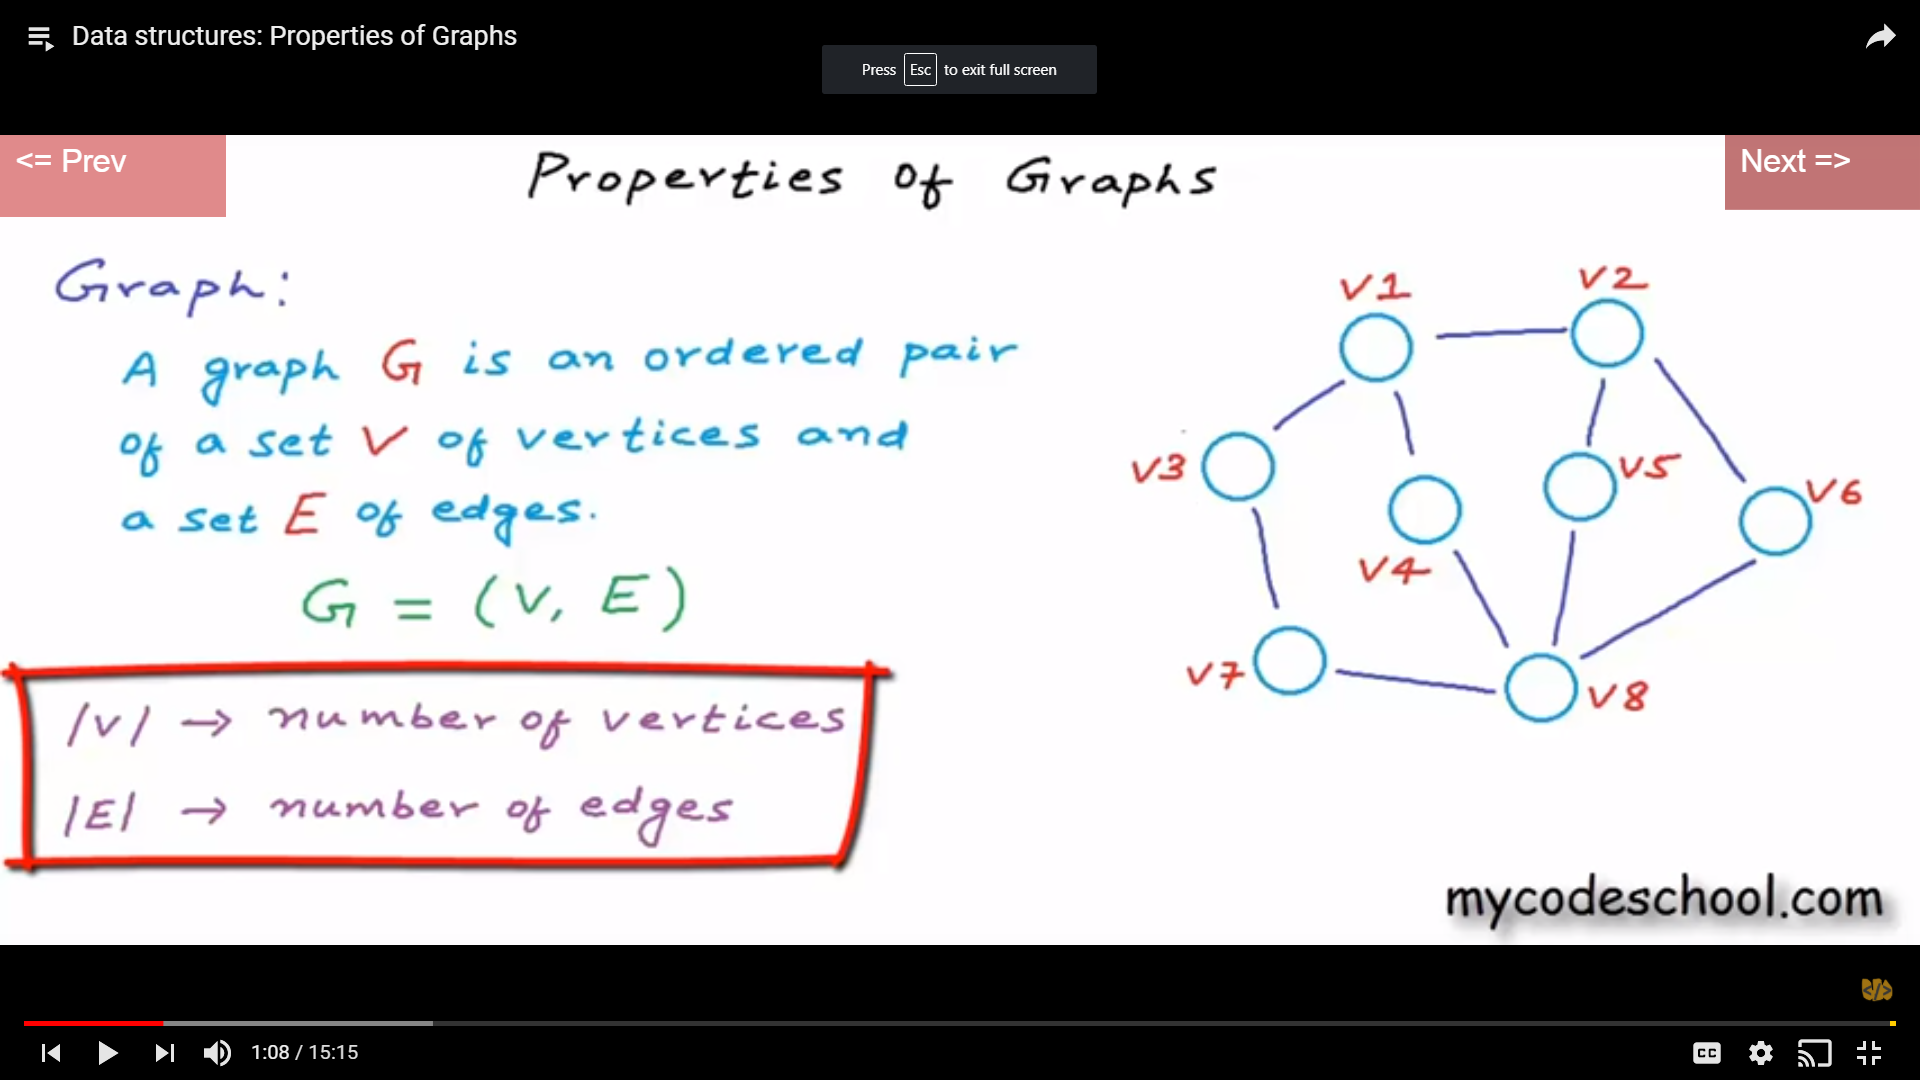 Data structures: Properties of Graphs
Press Esc to exit full screen
<= Prev
Properties of Graphs
Next =>
Graph:
A graph G is an ordered pair
of a set V of vertices and
a set E of edges.
G = (V, E)
|V| → number of vertices
|E| → number of edges
V1
V2
V3
V5
V6
V4
V7
V8
mycodeschool.com
</>
1:08 / 15:15
CC